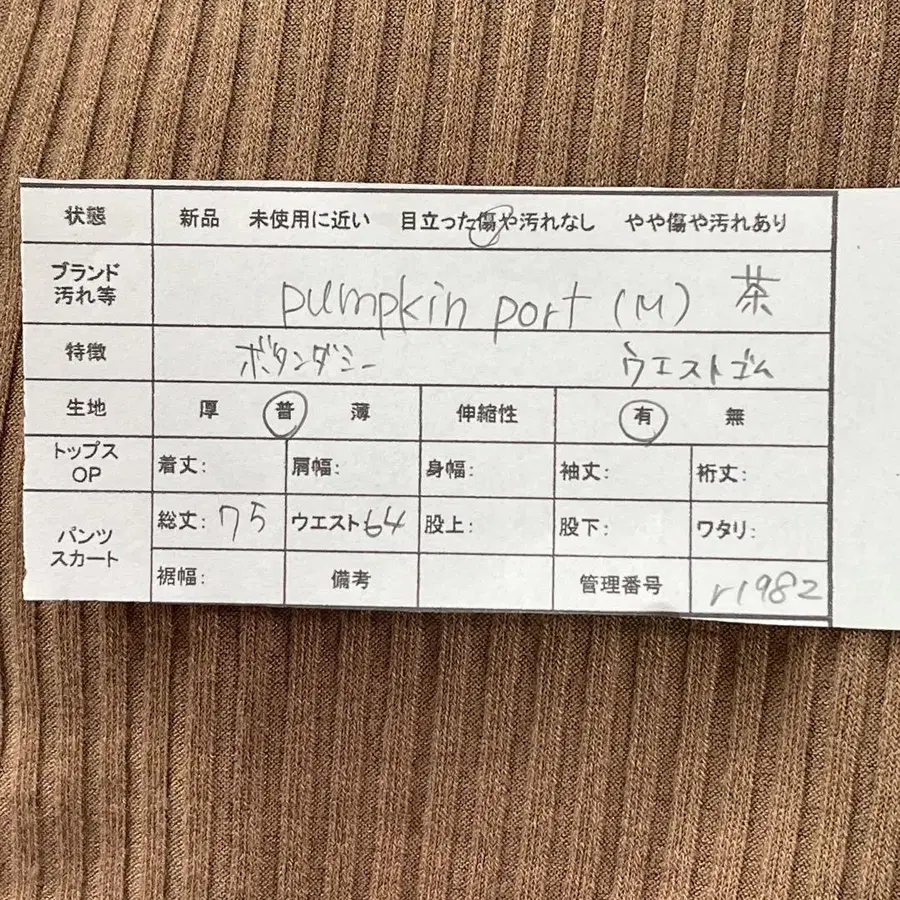 状態 新品 未使用に近い 目立った傷や汚れなし やや傷や汚れあり
ブランド
汚れ等 pumpkin port (M) 茶
特徴 ボタンダミー ウエストゴム
生地 厚 普 薄 伸縮性 有 無
トップス
OP 着丈: 肩幅: 身幅: 袖丈: 裄丈:
パンツ
スカート 総丈: 75 ウエスト64 股上: 股下: ワタリ:
裾幅: 備考 管理番号 r1982